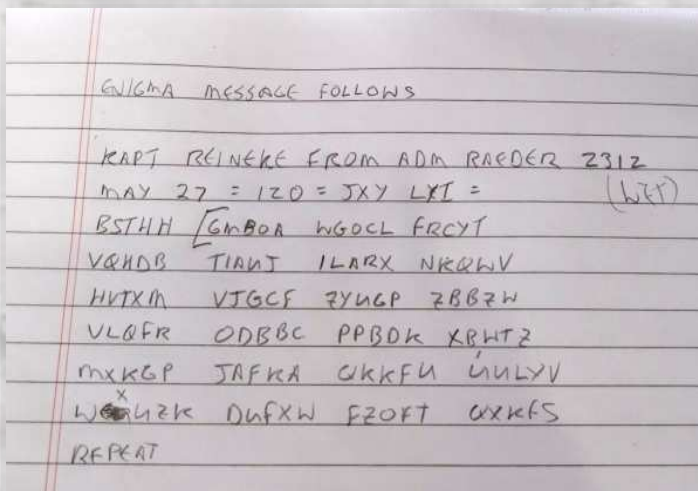 ENIGMA MESSAGE FOLLOWS
KAPT REINEKE FROM ADM RAEDER 2312
MAY 27 = 120 = JXY LXI = (WET)
BSTHH [GMBOA WGOCL FRCYT
VQHDB TIAUJ ILARX NKQWV
HVTXM VJGCF ZYUGP ZBBZW
VLQFR ODBBC PPBDK XBWTZ
MXKGP JAFKA QKKFU UULYV
WXUZK DUFXW FZOFT QXKFS
REPEAT